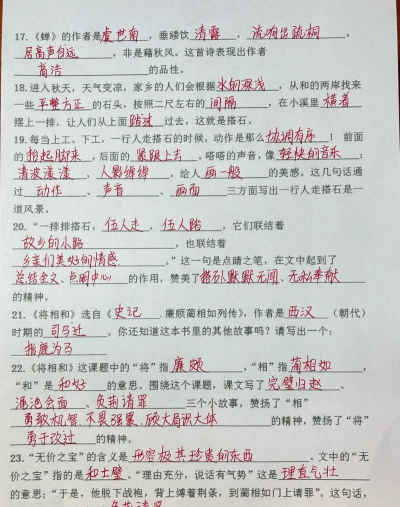 17.《蝉》的作者是虞世南，垂緌饮清露，流响出疏桐。
居高声自远，非是藉秋风。这首诗表现出作者
高洁的品性。
18.进入秋天，天气变凉，家乡的人们会根据水的深浅，从和的两岸找来
一些平整方正的石头，按照二尺左右的间隔，在小溪里横着
摆上一排，让人们从上面踏过过去，这就是搭石。
19.每当上工、下工，一行人走搭石的时候，动作是那么协调有序！前面
的抬起脚来，后面的紧跟上去。嗒嗒的声音，像轻快的音乐；
清波漾漾，人影绰绰，给人画一般的美感。这几句话通
过动作、声音、画面三方面写出一行人走搭石是一
道风景。
20.“一排排搭石，任人走、任人踏，它们联结着
故乡的小路，也联结着
乡亲们美好的情感。”这一句是点睛之笔，在文中起到了
总结全文、点明中心的作用，赞美了搭石默默无闻、无私奉献
的精神。
21.《将相和》选自《史记.廉颇蔺相如列传》，作者是西汉（朝代）
时期的司马迁。你还知道这本书里的其他故事吗？请写出一个：
指鹿为马
22.《将相和》这课题中的“将”指廉颇，“相”指蔺相如，
“和”是和好的意思。围绕这个课题，课文写了完璧归赵、
渑池会面、负荆请罪三个小故事，赞扬了“相”
勇敢机智、不畏强暴、顾大局识大体的精神，赞扬了“将”
勇于改过的精神。
23.“无价之宝”的含义是形容极其珍贵的东西，文中的“无
价之宝”指的是和氏璧。“理由充分，说话有气势”这是理直气壮
的意思；“于是，他脱下战袍，背上缚着荆条，到蔺相如门上请罪”。这句话，